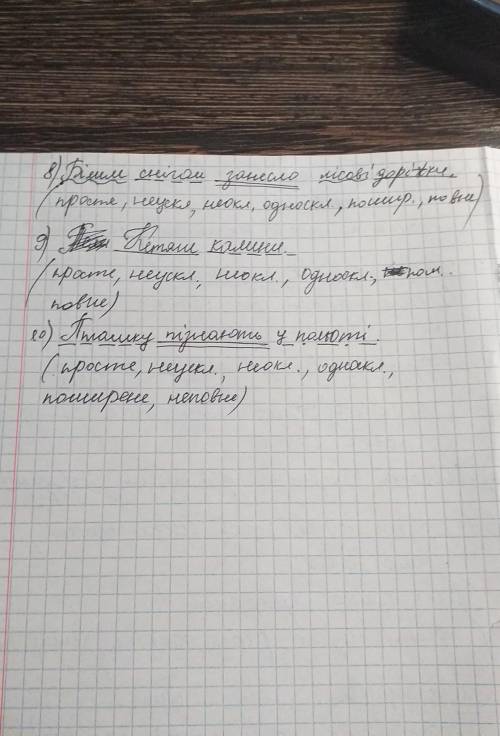 8) Білим снігом занесло лісові доріжки.
(просте, неускл, неокл, односкл, пошир., повне)
9) Кетяги калини.
(просте, неускл, неокл., односкл., пош.
повне)
10) Пташку пізнають у польоті.
(просте, неускл., неокл., однокл.,
поширене, неповне)